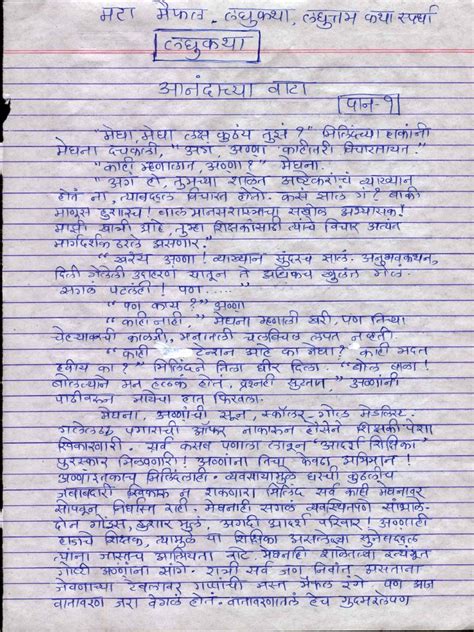 मटा मैफल - लघुकथा, लघुत्तम कथा स्पर्धा
लघुकथा
आनंदाच्या वाटा
पान-१
"मेघा, मेघा लक्ष कुठंय तुझं ?" मिलिंदच्या हाकांनी
मेघना दचकली, "अगं अण्णा काहीतरी विचारतायत."
"काही म्हणालात, अण्णा ?" मेघना.
"अगं हो, तुमच्या शाळेत अष्टेकरांचं व्याख्यान
होतं ना, त्याबद्दल विचारत होतो. कसं झालं गं ? बाकी
माणूस हुशारच ! बाल मानसशास्त्राचा सखोल अभ्यासक !
माझी खात्री आहे, तुम्हा शिक्षकांसाठी त्यांचे विचार अत्यंत
मार्गदर्शक ठरले असणार."
"खरंय अण्णा ! व्याख्यान सुंदरच झालं. अनुभवकथन,
दिली गेलेली उदाहरणं यातून ते अधिकच खुलत गेलं.
सगळं पटलंही ! पण......"
"पण काय ?" अण्णा
"काही नाही," मेघना म्हणाली खरी, पण तिच्या
चेहऱ्यावरची काळजी, मनातली चलबिचल लपत नव्हती.
"काही टेन्शन आहे का मेघा ? काही मदत
हवीय का ?" मिलिंदने तिला धीर दिला. "बोल बाळा !
बोलल्यानं मन हलकं होतं, प्रश्नही सुटतात," अण्णांनी
पाठीवरून मायेचा हात फिरवला.
मेघना, अण्णांची सून, स्कॉलर-गोल्ड मेडलिस्ट.
गलेलठ्ठ पगाराची ऑफर नाकारून हौसेने शिक्षकी-पेशा
स्विकारणारी. सर्व कसब पणाला लावून "आदर्श शिक्षिका"
पुरस्कार मिळवणारी ! अण्णांना तिचा केवढा अभिमान !
अण्णांइतकाच मिलिंदलाही. व्यवसायामुळे घरची कुठलीच
जबाबदारी स्विकारू न शकणारा मिलिंद सर्व काही मेघनावर
सोपवून निर्धास्त राही. मेघनाही सगळं व्यवस्थितपणे सांभाळे.
दोन गोंडस, हुशार मुलं, अगदी आदर्श परिवार ! अण्णाही
हाडाचे शिक्षक, त्यामुळे या शिक्षिका असलेल्या सुनेबद्दल
त्यांना जास्तच आत्मियता वाटे. मेघनाही शाळेतल्या इत्यंभूत
गोष्टी अण्णांना सांगे. रात्री सर्व जण निवांत असताना
जेवणाच्या टेबलावर गप्पांची मस्त मैफल रंगे. पण आज
वातावरण जरा वेगळं होतं. वातावरणातलं हेच गुदमरलेपण